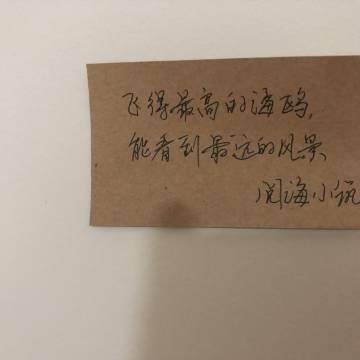 飞得最高的海鸥,
能看到最远的风景
阅海小筑